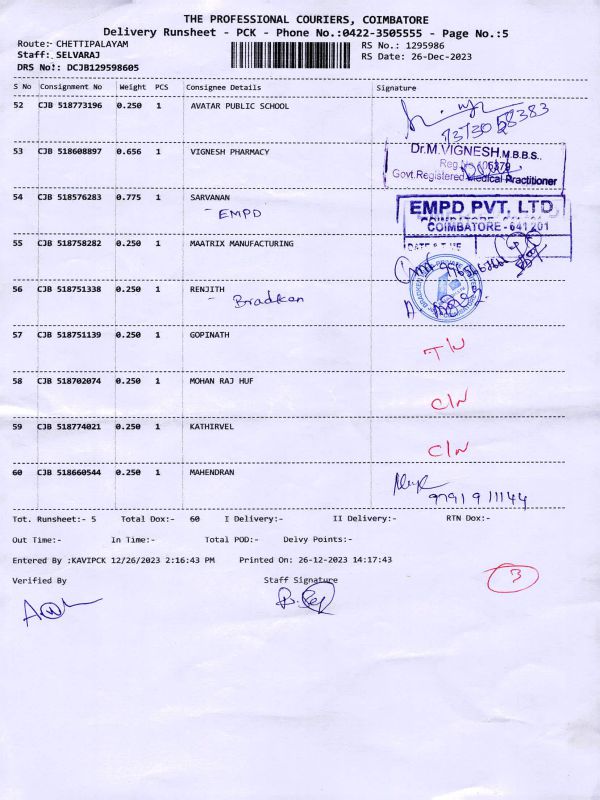 THE PROFESSIONAL COURIERS, COIMBATORE
Delivery Runsheet - PCK - Phone No.:0422-3505555 - Page No.:5
Route:- CHETTIPALAYAM RS No.: 1295986
Staff: SELVARAJ RS Date: 26-Dec-2023
DRS No: DCJB129598605
S No Consignment No Weight PCS Consignee Details Signature
52 CJB 518773196 0.250 1 AVATAR PUBLIC SCHOOL
53 CJB 518608897 0.656 1 VIGNESH PHARMACY
Dr.M.VIGNESH, M.B.B.S.,
Reg.No
Govt.Registered Medical Practitioner
54 CJB 518576283 0.775 1 SARVANAN
- EMPD
EMPD PVT. LTD
COIMBATORE - 641 201
55 CJB 518758282 0.250 1 MAATRIX MANUFACTURING
DATE & TIME
56 CJB 518751338 0.250 1 RENJITH
- Bradken
57 CJB 518751139 0.250 1 GOPINATH
58 CJB 518702074 0.250 1 MOHAN RAJ HUF C/N
59 CJB 518774021 0.250 1 KATHIRVEL C/N
60 CJB 518660544 0.250 1 MAHENDRAN
Tot. Runsheet:- 5 Total Dox:- 60 I Delivery:- II Delivery:- RTN Dox:-
Out Time:- In Time:- Total POD:- Delvy Points:-
Entered By :KAVIPCK 12/26/2023 2:16:43 PM Printed On: 26-12-2023 14:17:43
Verified By Staff Signature
3